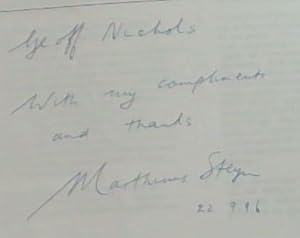 Geoff Nichols
With my compliments
and thanks
Marthinus Steyn
22 9.96